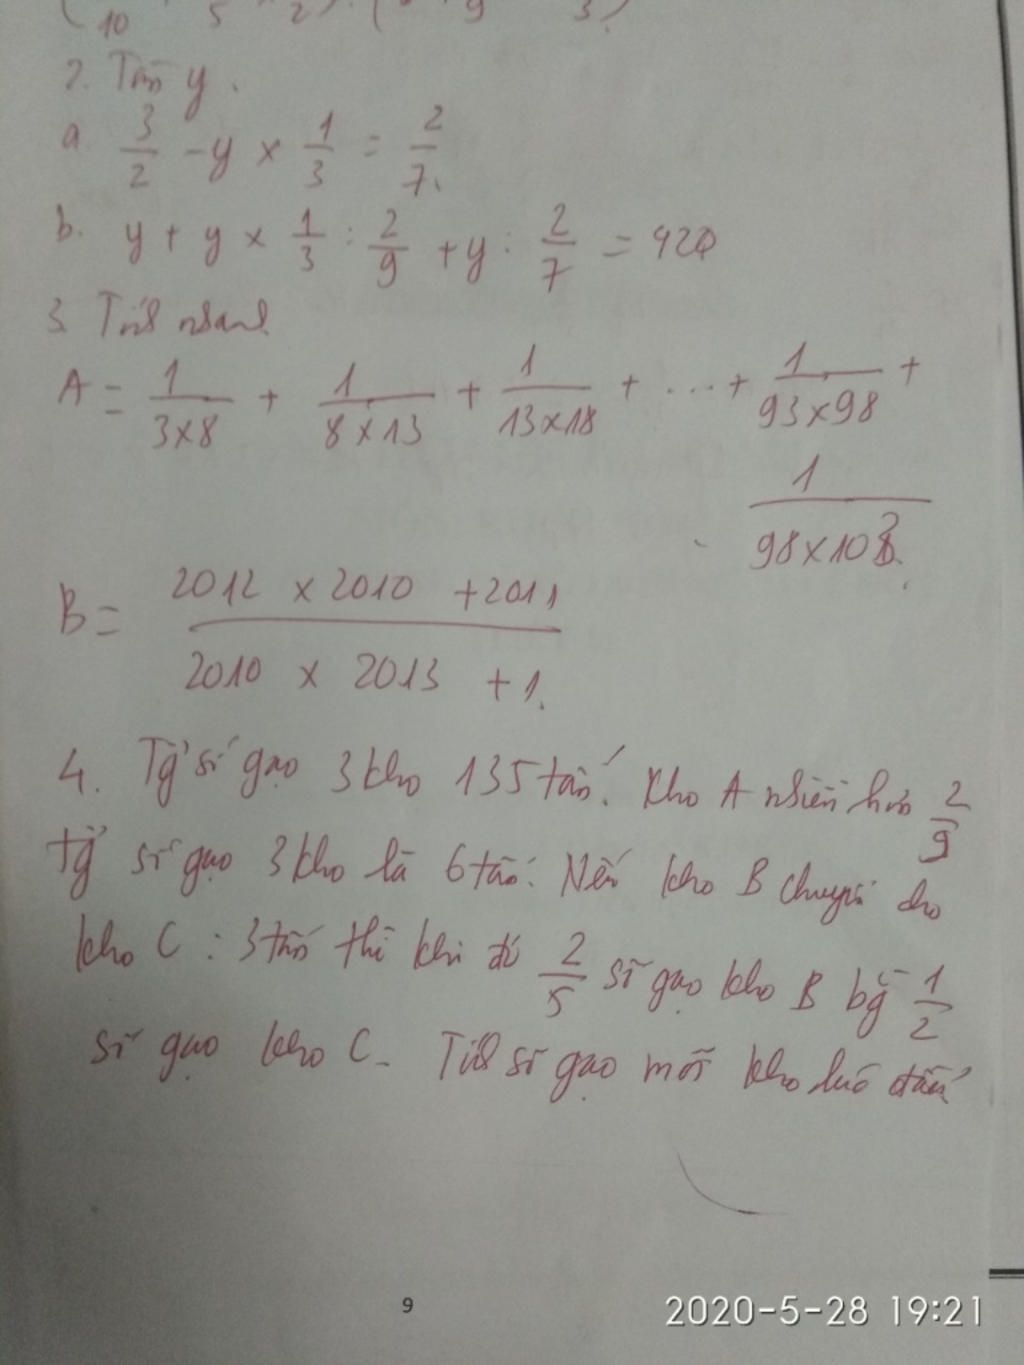 10 5 2 9 3
2. Tìm y.
a. 3/2 - y × 1/3 = 2/7.
b. y + y × 1/3 : 2/9 + y : 2/7 = 420
3. Tính nhanh
A = 1/(3×8) + 1/(8×13) + 1/(13×18) + ... + 1/(93×98) +
1/(98×103).
B = (2012 × 2010 + 2011)/(2010 × 2013 + 1.)
4. Tg số gạo 3 kho 135 tấn. Kho A nhiều hơn 2/9
tg số gạo 3 kho là 6 tấn. Nếu kho B chuyển cho
kho C : 3 tấn thì khi đó 2/5 số gạo kho B bg 1/2
số gạo kho C. Tính số gạo mỗi kho lúc đầu
9
2020-5-28 19:21